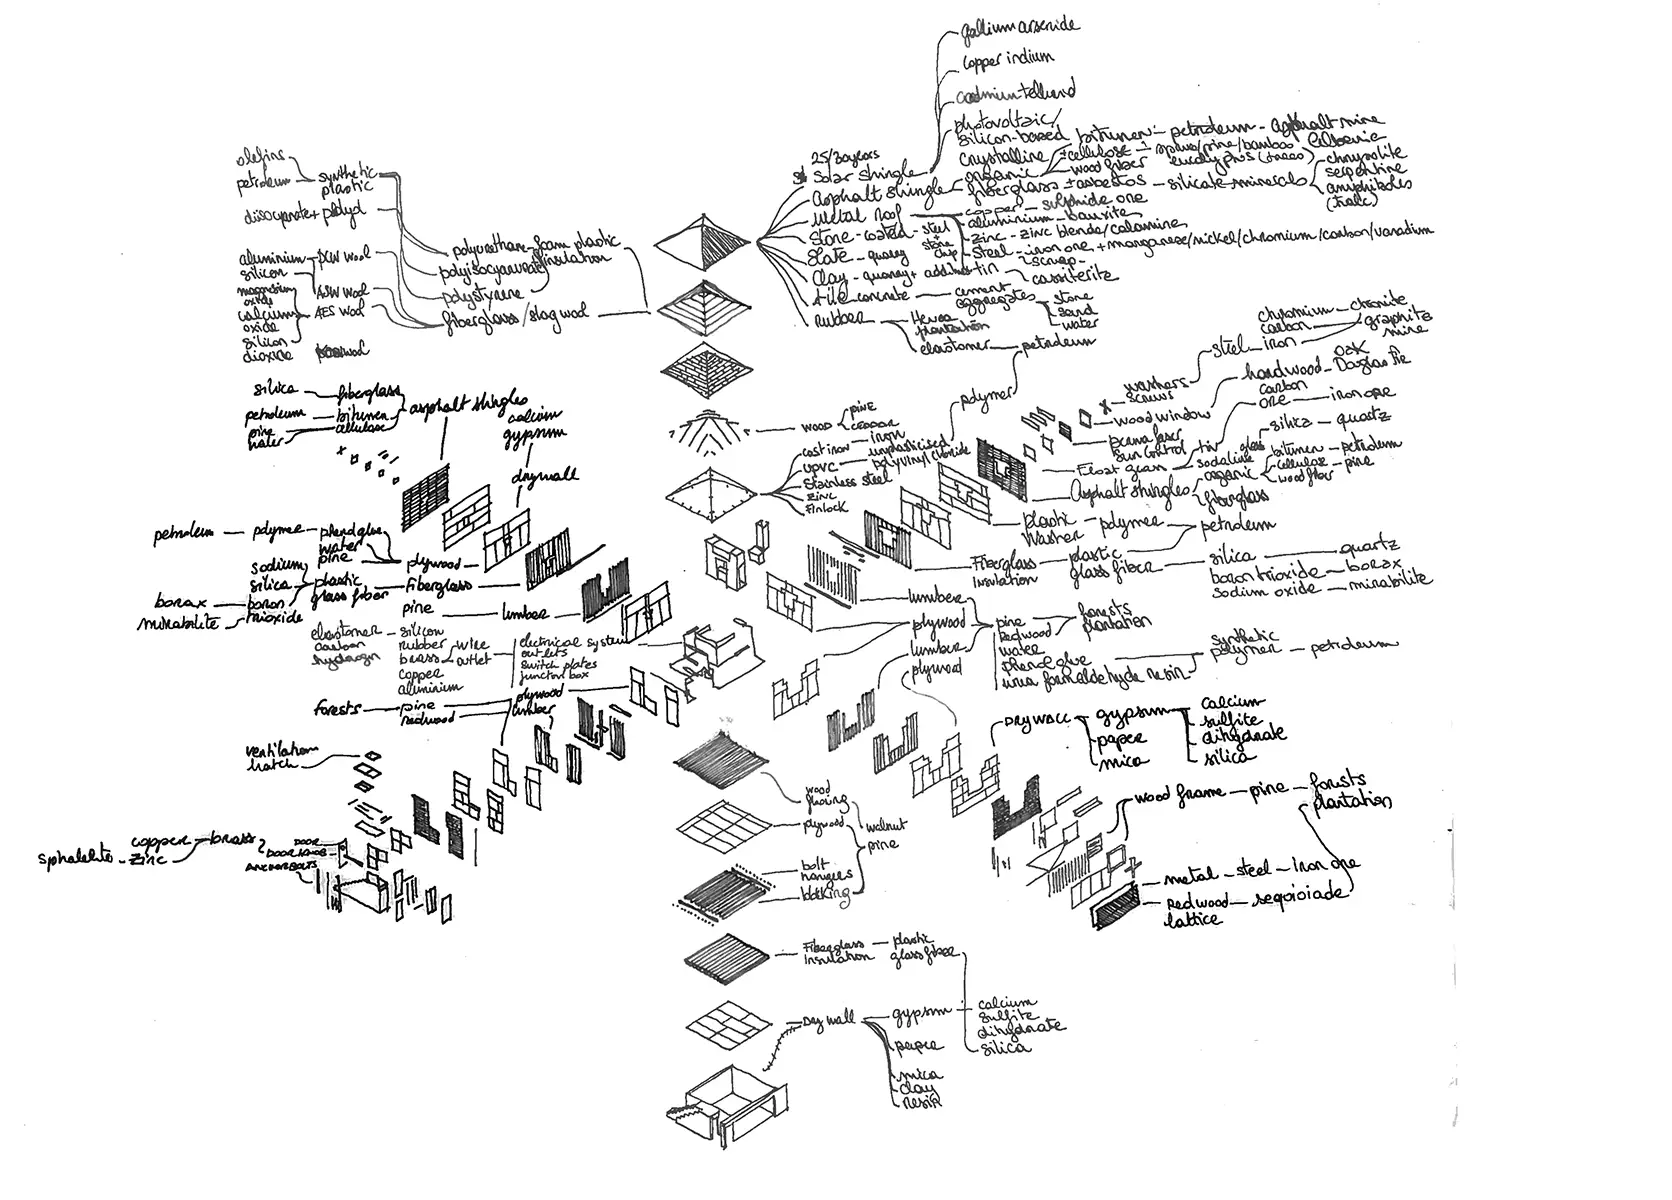 gallium arsenide
copper indium
photovoltaic/
silicon-based
crystalline
25/30 years
solar shingle
bitumen - petroleum - asphalt mine
organic
cellulose
wood fiber
spruce/pine/bamboo
eucalyptus (trees)
asphalt shingle
fiberglass + asbestos - silicate minerals
chrysolite
serpentine
amphiboles
(talc)
metal roof
copper - sulphide ore
aluminium - bauxite
zinc - zinc blende/calamine
steel - iron ore + manganese/nickel/chromium/carbon/vanadium
scrap
tin
cassiterite
stone-coated - steel
+
stone
chip
slate - quarry
clay - quarry +
tile concrete - cement
aggregates
stone
sand
water
rubber
Hevea
plantation
elastomer - petroleum
olefins
petroleum - synthetic
plastic
diisocyanate +
polyurethane-foam plastic
polyisocyanurate insulation
polystyrene
fiberglass/slag wool
aluminium - PCW wool
silicon
magnesium
oxide
calcium
oxide
silicon
dioxide
ASW wool
AES wool
silica - fiberglass
petroleum - bitumen
pine
water
cellulose
asphalt shingles
calcium
gypsum
drywall
petroleum - polymer - phenol glue
water
pine
plywood
sodium
silica
plastic
glass fiber
fiberglass
borax - boron
trioxide
mirabilite
pine - lumber
elastomer - silicon
carbon
hydrogen
rubber
brass
copper
aluminium
wire
outlet
electrical system
outlets
switch plates
junction box
forests - pine
redwood
plywood
lumber
ventilation
hatch
sphalelite - zinc
copper - brass
DOOR
DOOR KNOB
ANCHOR BOLTS
wood
pine
cast iron - iron
UPVC - unplasticised
polyvinyl chloride
polymer
stainless steel
zinc
Finlock
washers
screws
steel - iron
chromium - chromite
carbon - graphite
mine
wood window
hardwood - oak
Douglas fir
sun control
Float glass
tin
carbon
ore - iron ore
glass
silica - quartz
Asphalt shingles
organic
bitumen - petroleum
cellulose - pine
wood fiber
fiberglass
plastic - polymer - petroleum
washer
Fiberglass
insulation
plastic
glass fiber
silica - quartz
boron trioxide - borax
sodium oxide - mirabilite
lumber
plywood
lumber
plywood
pine
redwood
water
phenol glue
urea formaldehyde resin
forests
plantation
synthetic
polymer - petroleum
DRYWALL
gypsum
paper
mica
calcium
sulfite
dihydrate
silica
wood frame - pine - forests
plantation
metal - steel - iron ore
Redwood - seqoioiade
lattice
wood
plywood
walnut
pine
bolt
hangers
blocking
Fiberglass
insulation
plastic
glass fiber
Dry wall
gypsum
paper
mica
clay
resin
calcium
sulfite
dihydrate
silica